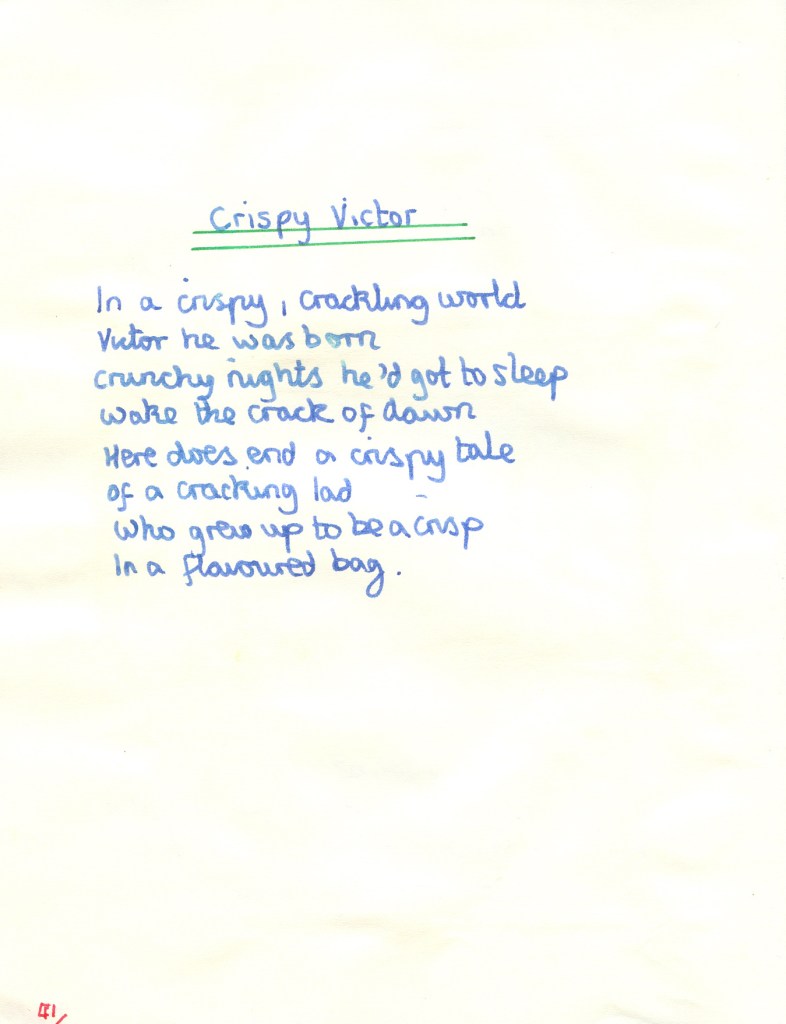 Crispy Victor
In a crispy, crackling world
Victor he was born
crunchy nights he'd got to sleep
wake the crack of dawn
Here does end a crispy tale
of a cracking lad
who grew up to be a crisp
In a flavoured bag.
41/